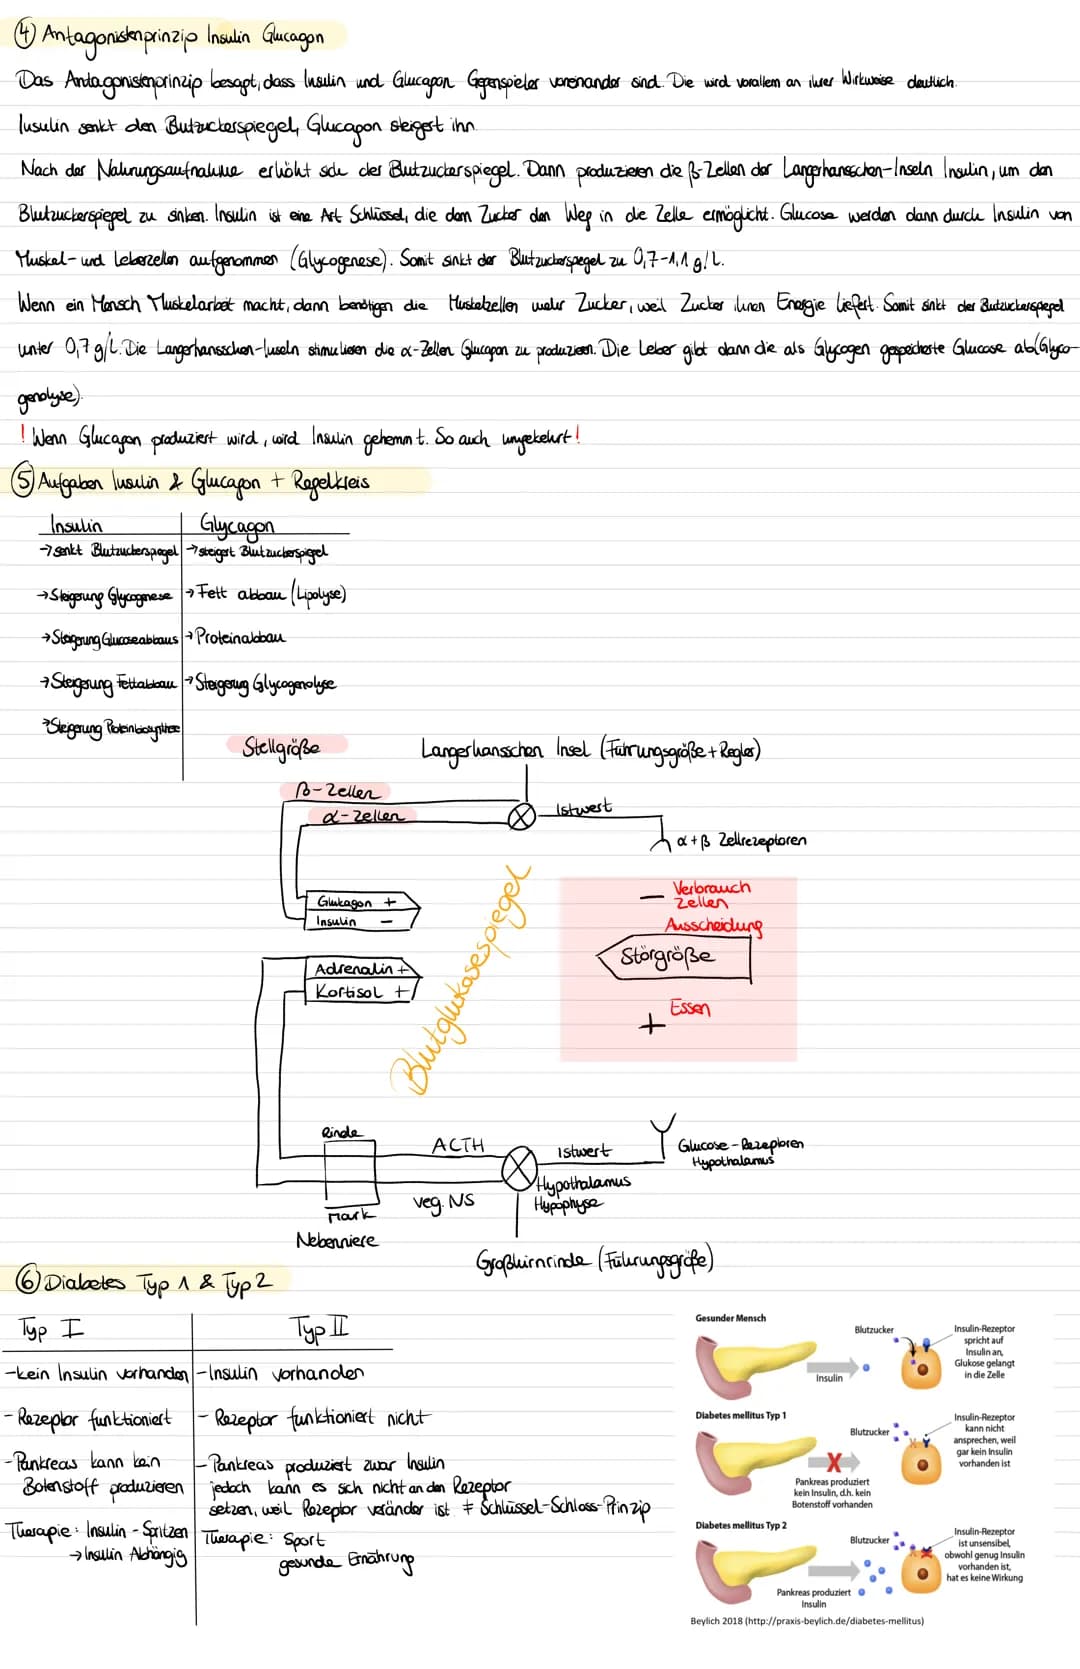 ④ Antagonistenprinzip Insulin Glucagon
Das Antagonistenprinzip besagt, dass Insulin und Glucagon Gegenspieler voneinander sind. Die wird vorallem an ihrer Wirkweise deutlich.
Insulin senkt den Butzuckerspiegel, Glucagon steigert ihn.
Nach der Nahrungsaufnahme erhöht sich der Blutzuckerspiegel. Dann produzieren die β-Zellen der Langerhansschen-Inseln Insulin, um den
Blutzuckerspiegel zu sinken. Insulin ist eine Art Schlüssel, die dem Zucker den Weg in die Zelle ermöglicht. Glucose werden dann durch Insulin von
Muskel- und Leberzellen aufgenommen (Glycogenese). Somit sinkt der Blutzuckerspiegel zu 0,7-1,1 g/L.
Wenn ein Mensch Muskelarbeit macht, dann benötigen die Muskelzellen mehr Zucker, weil Zucker ihnen Energie liefert. Somit sinkt der Blutzuckerspiegel
unter 0,7 g/L. Die Langerhansschen-Inseln stimulieren die α-Zellen Glucagon zu produzieren. Die Leber gibt dann die als Glycogen gespeicherte Glucose ab (Glyco-
genolyse).
! Wenn Glucagon produziert wird, wird Insulin gehemmt. So auch umgekehrt!
⑤ Aufgaben Insulin & Glucagon + Regelkreis
Insulin Glycagon
→ senkt Blutzuckerspiegel → steigert Blutzuckerspiegel
→ Steigerung Glycogenese → Fett abbau (Lipolyse)
→ Steigerung Glucoseabbaus → Proteinabbau
→ Steigerung Fettabbau → Steigerung Glycogenolyse
→ Steigerung Proteinbiosynthese
Stellgröße Langerhansschen Insel (Führungsgröße + Regler)
β-Zellen
α-Zellen Istwert
α+β Zellrezeptoren
Glukagon +
Insulin −
Adrenalin +
Kortisol +
Blutglukosespiegel
− Verbrauch
Zellen
Ausscheidung
Störgröße
+ Essen
Rinde
ACTH Istwert Glucose-Rezeptoren
Hypothalamus
Hypothalamus
Hypophyse
veg. NS
Mark
Nebenniere
Großhirnrinde (Führungsgröße)
⑥ Diabetes Typ 1 & Typ 2
Typ I Typ II
- kein Insulin vorhanden - Insulin vorhanden
- Rezeptor funktioniert - Rezeptor funktioniert nicht
- Pankreas kann kein - Pankreas produziert zwar Insulin
Botenstoff produzieren jedoch kann es sich nicht an den Rezeptor
setzen, weil Rezeptor veränder ist ≠ Schlüssel-Schloss-Prinzip
Therapie: Insulin-Spritzen Therapie: Sport
→ Insulin Abhängig gesunde Ernährung
Gesunder Mensch
Blutzucker
Insulin
Insulin-Rezeptor
spricht auf
Insulin an,
Glukose gelangt
in die Zelle
Diabetes mellitus Typ 1
Blutzucker
X
Pankreas produziert
kein Insulin, d.h. kein
Botenstoff vorhanden
Insulin-Rezeptor
kann nicht
ansprechen, weil
gar kein Insulin
vorhanden ist
Diabetes mellitus Typ 2
Blutzucker
Pankreas produziert
Insulin
Insulin-Rezeptor
ist unsensibel,
obwohl genug Insulin
vorhanden ist,
hat es keine Wirkung
Beylich 2018 (http://praxis-beylich.de/diabetes-mellitus)